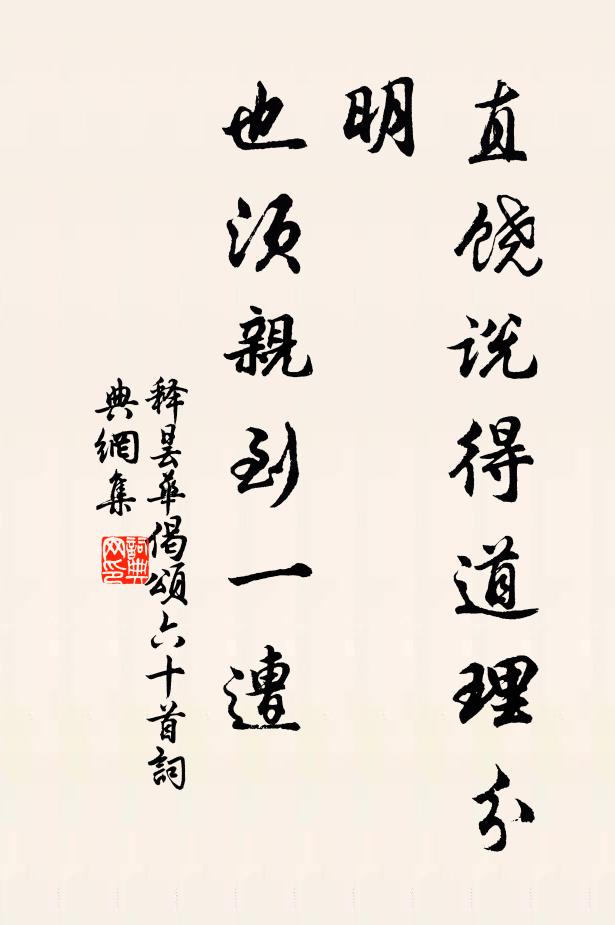 直饶说得道理分
明
也须親到一遭
释昙華偈頌六十首詞
典網集
詞典網印